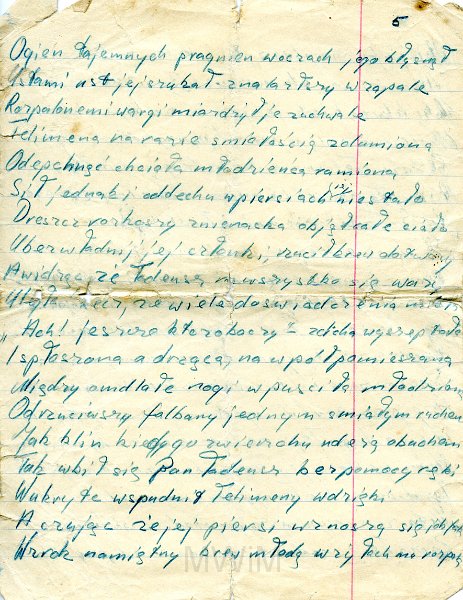 5
Ogień tajemnych pragnień w oczach jego błysnął
Ustami ust jej szukał - znalazłszy w zapale
Rozpalonemi wargi miażdżył je zuchwale
Telimena na razie śmiałością zdumiona
Odepchnąć chciała młodzieńca ramiona
Sił jednak i oddechu w piersiach jej nie stało
Dreszcz rozkoszy znienacka objął całe ciało
Ubezwładnił jej członki, rzucił krew do
A widząc że Tadeusz na wszystko się waży
rzecz, że wiele doświadczenia
"Ach! jeszcze kto zobaczy" - z cicha wyszeptała
I spłoszona a drżąca, na wpół pomieszana
Między omdlałe nogi wpuściła młodziana
Odrzuciwszy falbany jednym śmiałym ruchem
Jak klin kiedy go z wierzchu uderzą obuchem
Tak wbił się Pan Tadeusz bez pomocy ręki
W ukryte wśpudnit Telimeny wdzięki
A czując że jej piersi wznoszą się
Wzrok namiętny krew młodą w żyłach mu
MWiM